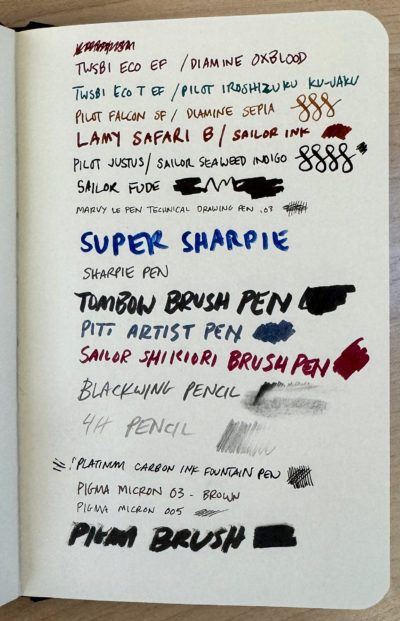 TWSBI ECO EF / DIAMINE OXBLOOD
TWSBI ECO T EF / PILOT IROSHIZUKU KU-JAKU
PILOT FALCON SF / DIAMINE SEPIA
LAMY SAFARI B / SAILOR INK
PILOT JUSTUS / SAILOR SEAWEED INDIGO
SAILOR FUDE
MARVY LE PEN TECHNICAL DRAWING PEN .03
SUPER SHARPIE
SHARPIE PEN
TOMBOW BRUSH PEN
PITT ARTIST PEN
SAILOR SHIKIORI BRUSH PEN
BLACKWING PENCIL
4H PENCIL
PLATINUM CARBON INK FOUNTAIN PEN
PIGMA MICRON 03 - BROWN
PIGMA MICRON 005
PIGMA BRUSH